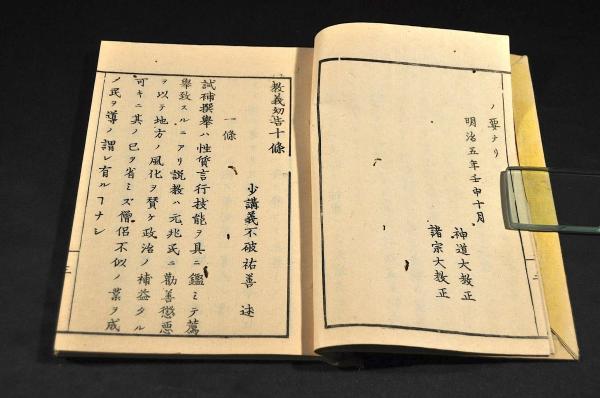 ノ要ナリ
明治五年壬申十月
神道大教正
諸宗大教正
教義初告十條
少講義不破祐善 述
一條
試補撰擧ハ性質言行技能ヲ具ニ鑑ミテ薦
擧致スルニアリ説教ハ元兆民ニ勸善懲悪
ヲ以テ地方ノ風化ヲ賛ケ政治ノ補益タル
可キニ其ノ己ヲ省ミズ僧侶不似ノ業ヲ成
ノ民ヲ導ノ謂レ有ルヿナシ
三